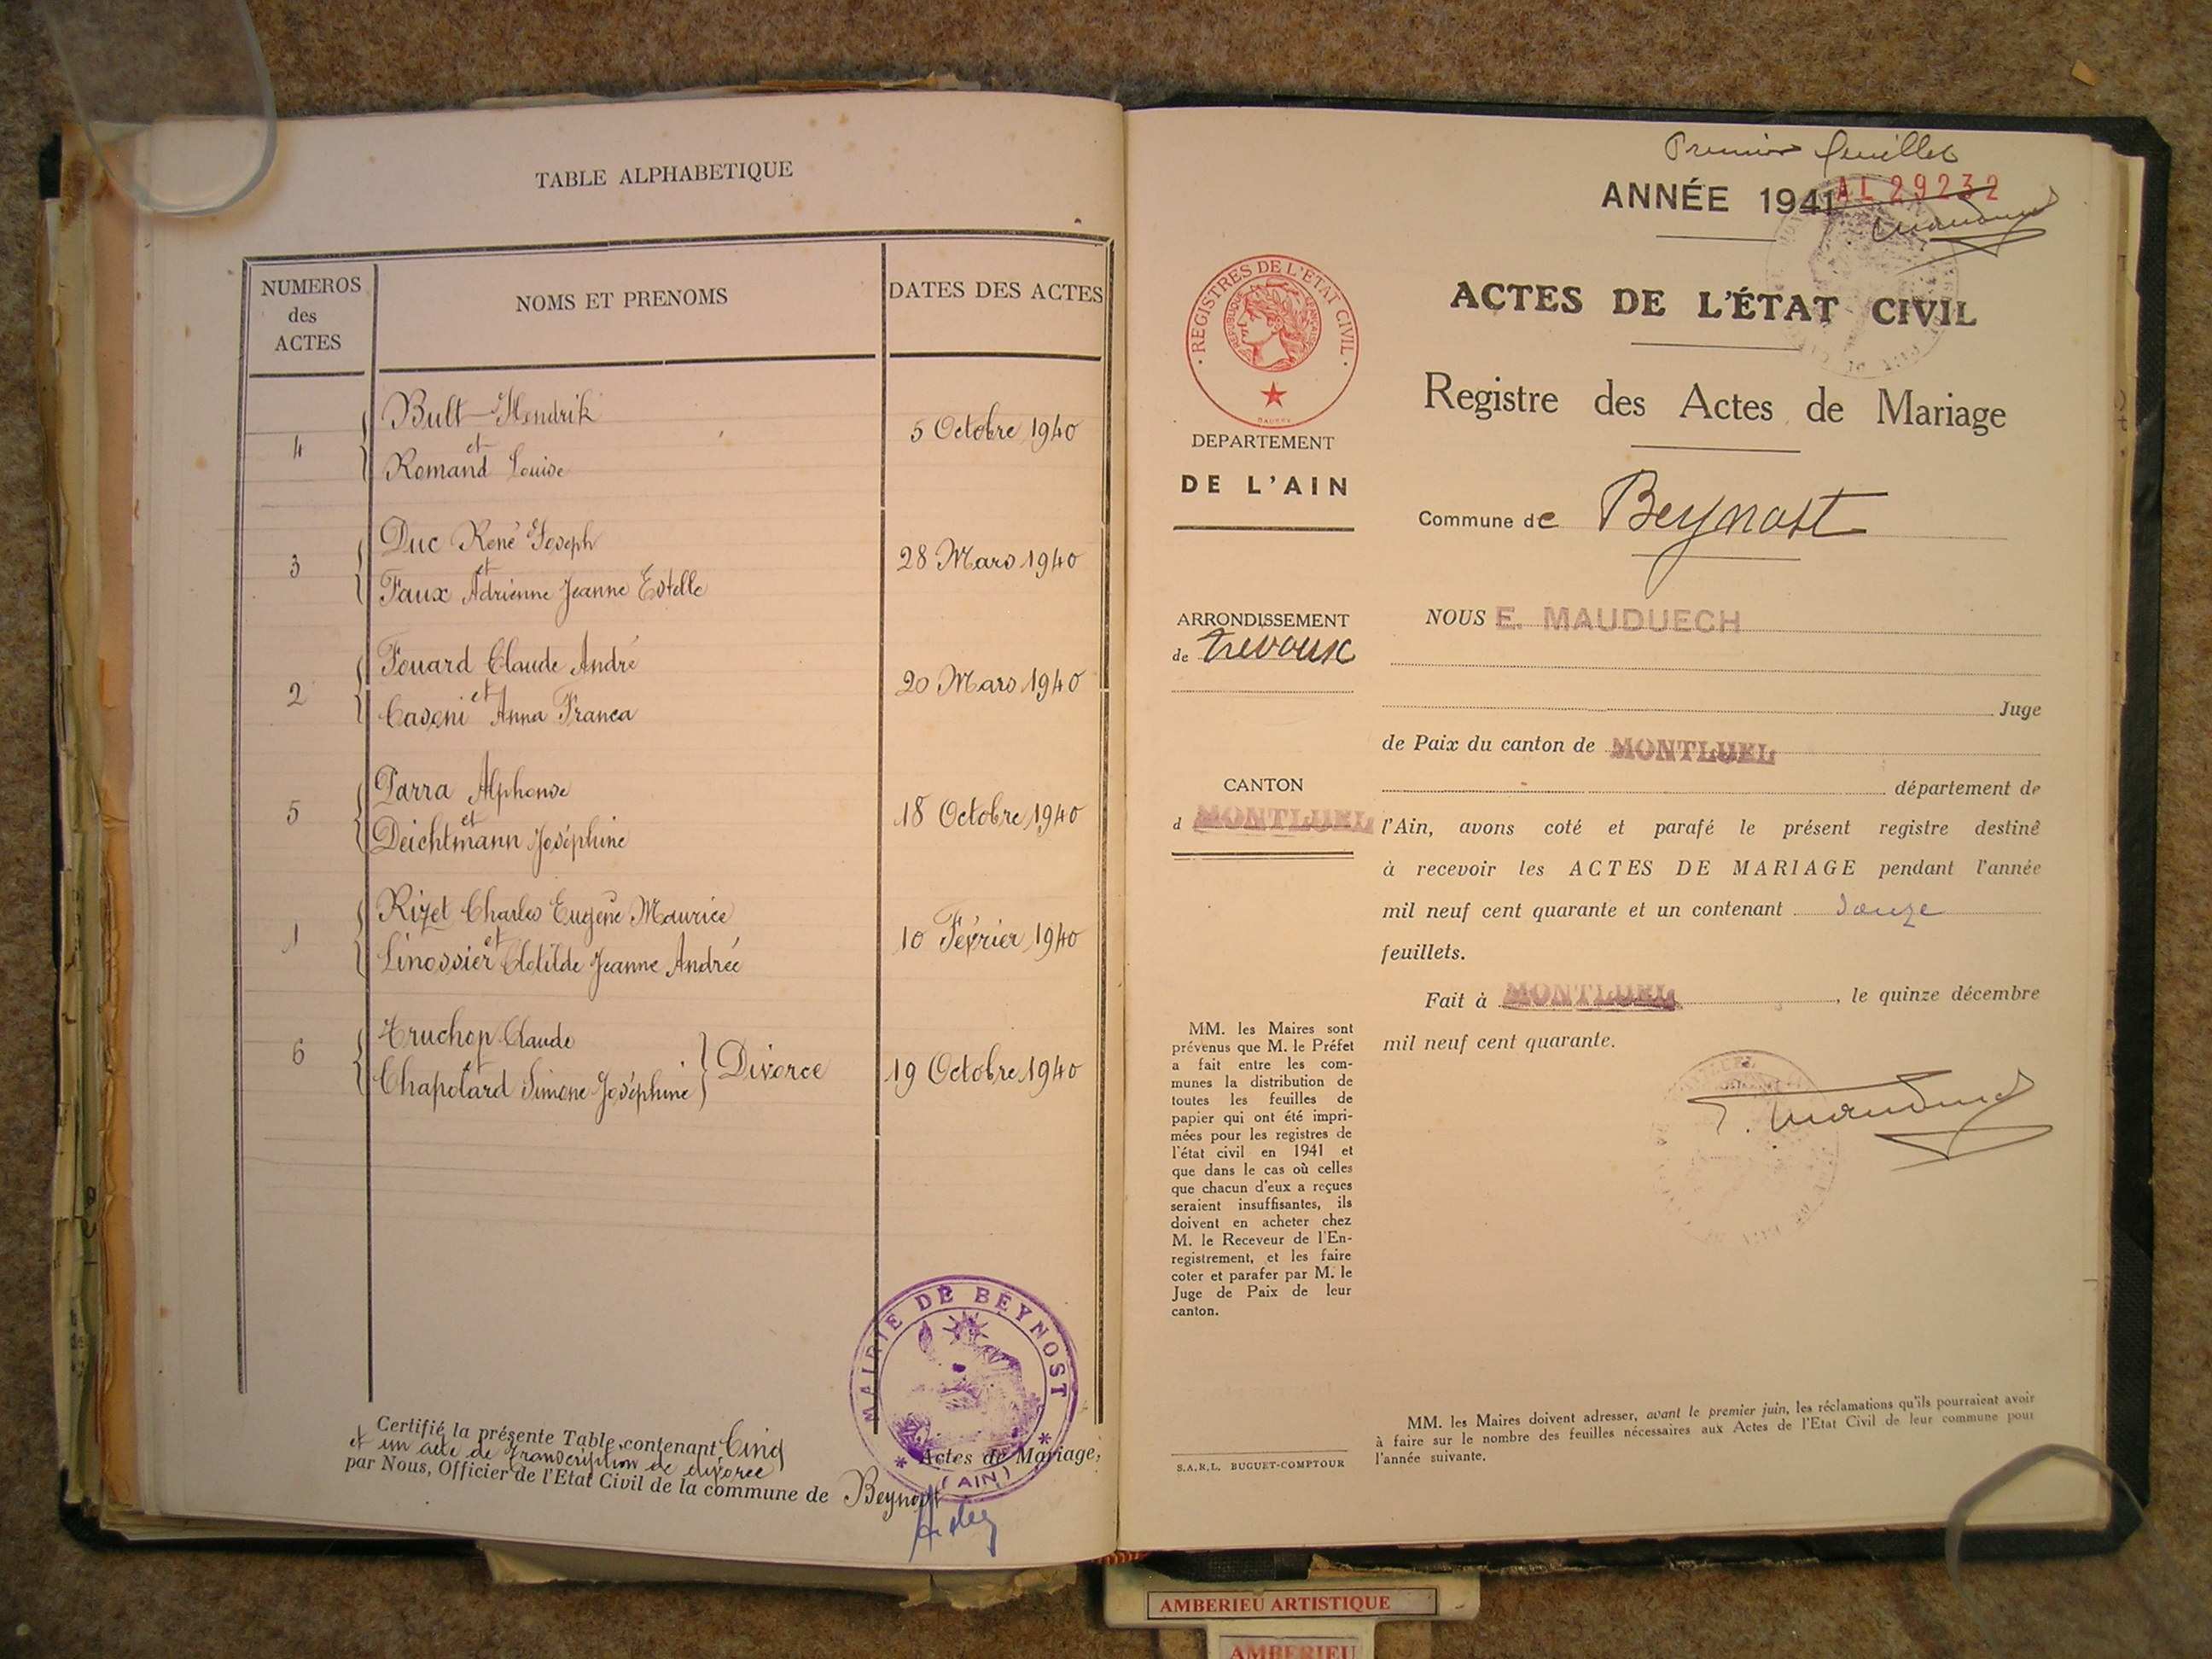 TABLE ALPHABETIQUE
NUMEROS des ACTES
NOMS ET PRENOMS
DATES DES ACTES
4
Bult Hendrik
et
Romand Louise
5 Octobre 1940
3
Duc René Joseph
et
Faux Adrienne Jeanne Estelle
28 Mars 1940
2
Fouard Claude André
et
Casoni Anna Franca
20 Mars 1940
5
Parra Alphonse
et
Deichtmann Joséphine
18 Octobre 1940
1
Rizet Charles Eugène Maurice
et
Linossier Clotilde Jeanne Andrée
10 Février 1940
6
Truchon Claude
et
Chapotard Simone Joséphine
Divorce
19 Octobre 1940
MAIRIE DE BEYNOST
(AIN)
Certifié la présente Table contenant Cinq Actes de Mariage,
et un acte de transcription de divorce
par Nous, Officier de l'Etat Civil de la commune de Beynost
Premier feuillet
ANNÉE 1941
AL 29232
ACTES DE L'ÉTAT CIVIL
Registre des Actes de Mariage
Commune de Beynost
REGISTRES DE L'ETAT CIVIL
REPUBLIQUE FRANCAISE
DEPARTEMENT
DE L'AIN
ARRONDISSEMENT
de Trevoux
CANTON
d MONTLUEL
NOUS E. MAUDUECH
Juge
de Paix du canton de MONTLUEL
département de
l'Ain, avons coté et parafé le présent registre destiné
à recevoir les ACTES DE MARIAGE pendant l'année
mil neuf cent quarante et un contenant douze
feuillets.
Fait à MONTLUEL, le quinze décembre
mil neuf cent quarante.
MM. les Maires sont
prévenus que M. le Préfet
a fait entre les com-
munes la distribution de
toutes les feuilles de
papier qui ont été impri-
mées pour les registres de
l'état civil en 1941 et
que dans le cas où celles
que chacun d'eux a reçues
seraient insuffisantes, ils
doivent en acheter chez
M. le Receveur de l'En-
registrement, et les faire
coter et parafer par M. le
Juge de Paix de leur
canton.
S.A.R.L. BUGUET-COMPTOUR
MM. les Maires doivent adresser, avant le premier juin, les réclamations qu'ils pourraient avoir
à faire sur le nombre des feuilles nécessaires aux Actes de l'Etat Civil de leur commune pour
l'année suivante.
AMBERIEU ARTISTIQUE
AMBERIEU